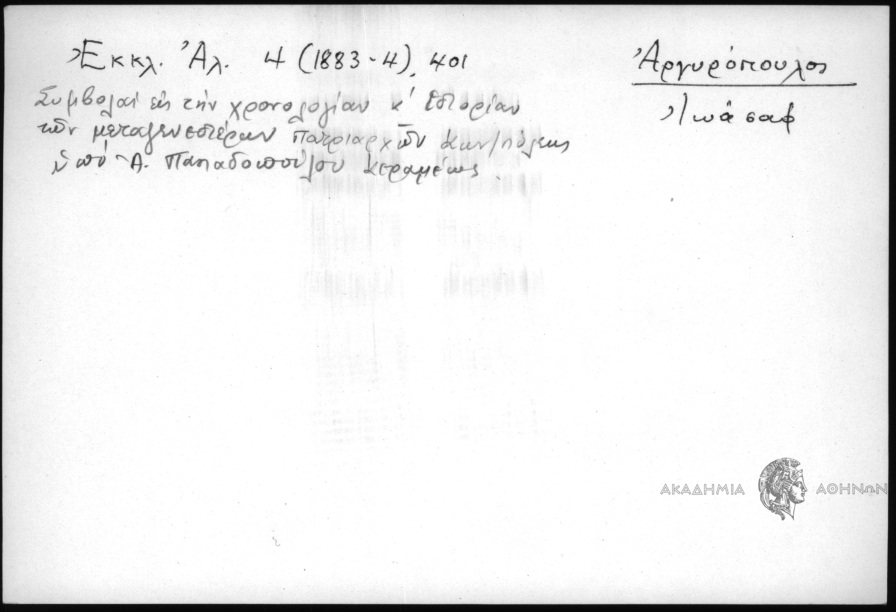 Ἐκκλ. Ἀλ. 4 (1883-4), 401
Ἀργυρόπουλος
Ἰωάσαφ
Συμβολαὶ εἰς τὴν χρονολογίαν κ' ἱστορίαν
τῶν μεταγενεστέρων πατριαρχῶν Κων/πόλεως
ὑπὸ Ἀ. Παπαδοπούλου Κεραμέως
ΑΚΑΔΗΜΙΑ ΑΘΗΝΩΝ